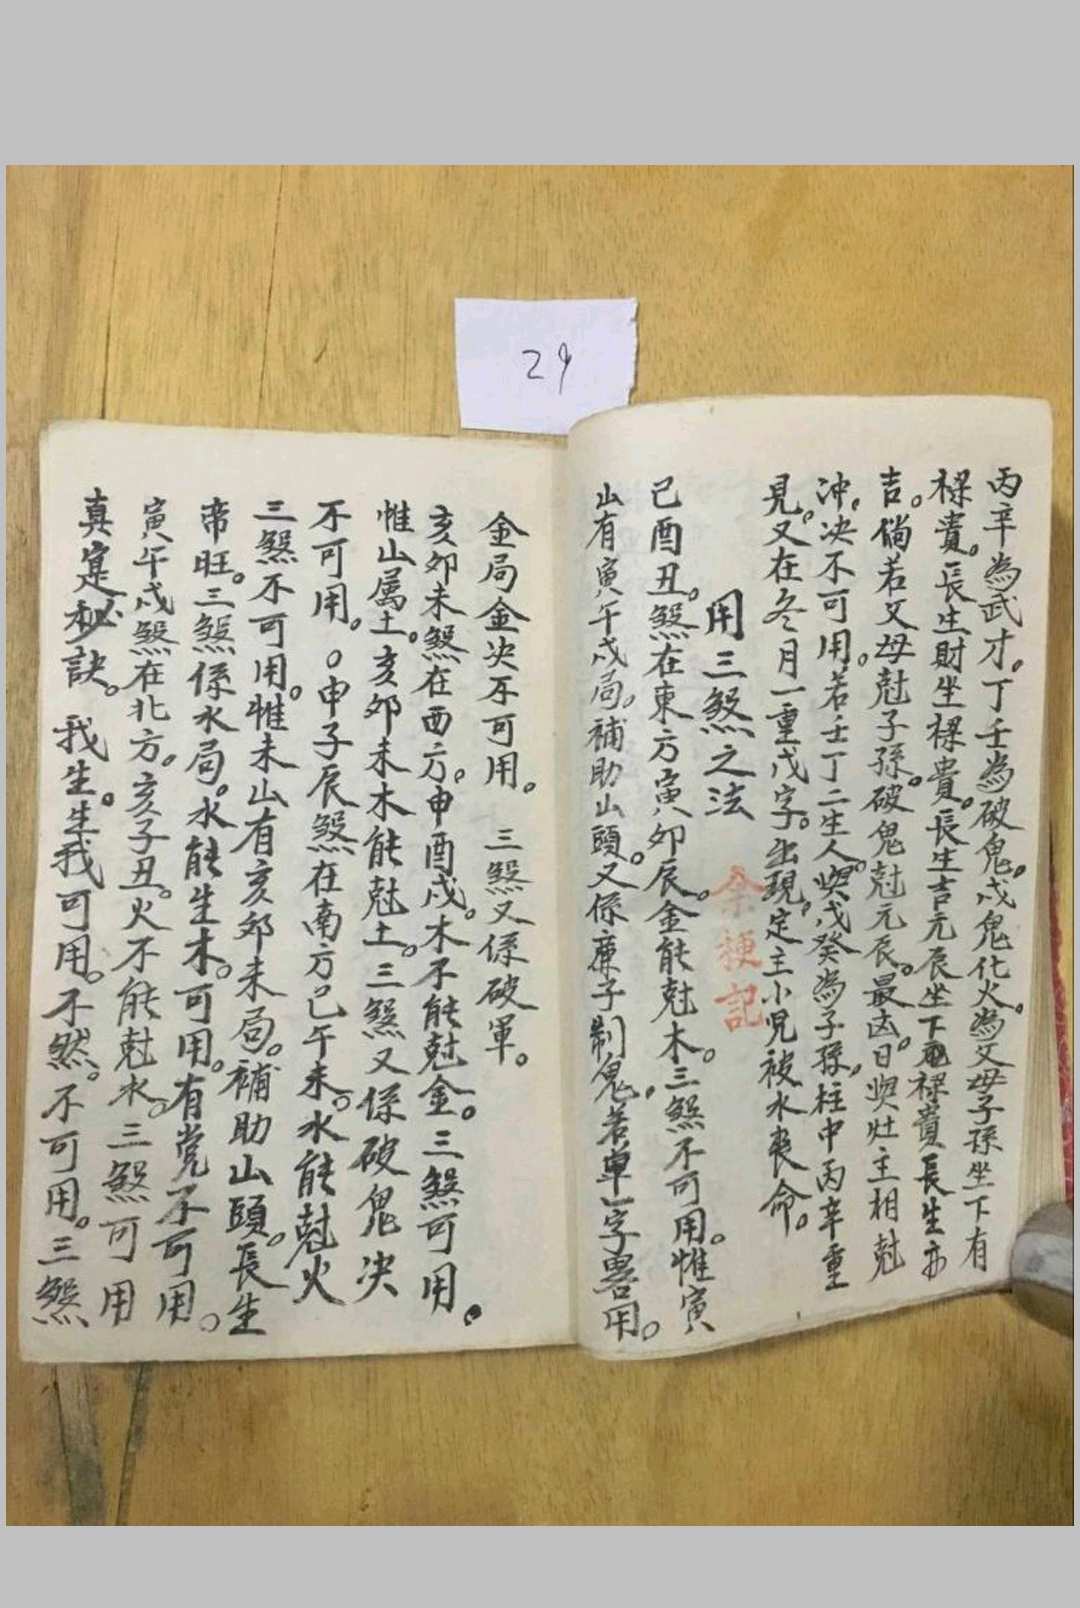 29
丙辛為武才。丁壬為破鬼。戊鬼化火。為父母子孫坐下有
祿貴。長生財坐祿貴。長生吉元辰坐下祿貴長生亦
吉。倘若父母尅子孫。破鬼尅元辰。最凶日與灶主相尅
沖。决不可用。若壬丁二生人。與戊癸為子孫，柱中丙辛重
見。又在冬月一重戊字。出現。定主小児被水喪命。
用三煞之法
余梗記
己酉丑。煞在東方寅卯辰。金能尅木。三煞不可用。惟寅
山有寅午戌局。補助山頭。又係廉子制鬼。若單一字畧用。
金局金决不可用。 三煞又係破軍。
亥卯未煞在西方。申酉戌。木不能尅金。三煞可用。
惟山属土。亥卯未木能尅土。三煞又係破鬼决
不可用。○申子辰煞在南方己午未。水能尅火
三煞不可用。惟未山有亥卯未局。補助山頭。長生
帝旺。三煞係水局。水能生木。可用。有党不可用。
寅午戌煞在北方。亥子丑。火不能尅水。三煞可用
真寔秘訣。我生。生我可用。不然。不可用。三煞